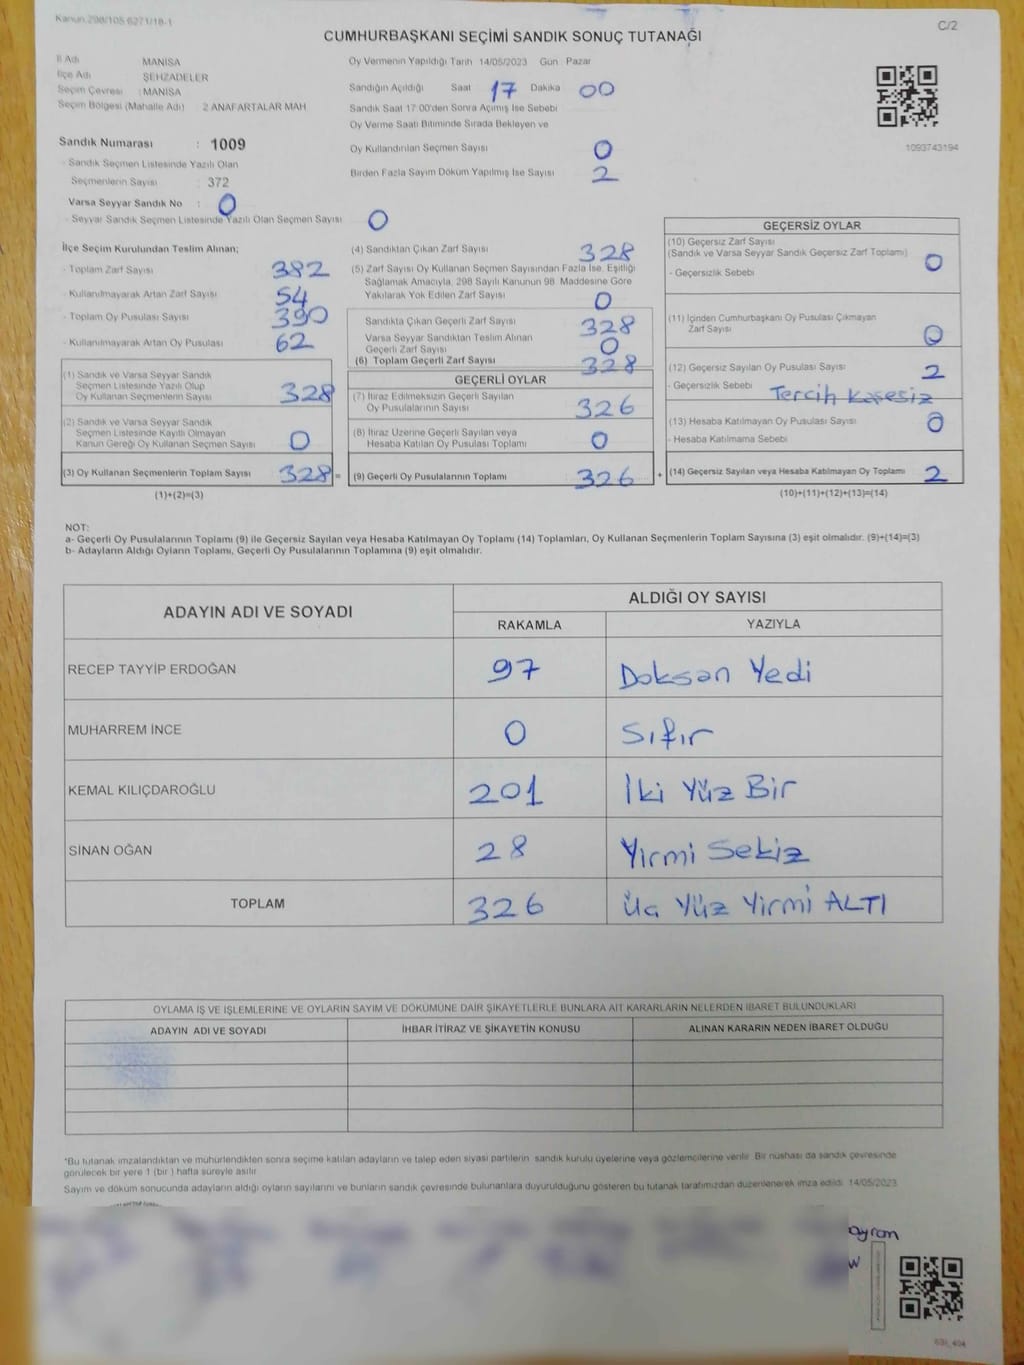 Kanun 298/105 6271/18-1
C/2
CUMHURBAŞKANI SEÇİMİ SANDIK SONUÇ TUTANAĞI
İl Adı MANİSA
İlçe Adı ŞEHZADELER
Seçim Çevresi : MANİSA
Seçim Bölgesi (Mahalle Adı) 2 ANAFARTALAR MAH
Sandık Numarası : 1009
- Sandık Seçmen Listesinde Yazılı Olan
Seçmenlerin Sayısı : 372
Varsa Seyyar Sandık No : 0
- Seyyar Sandık Seçmen Listesinde Yazılı Olan Seçmen Sayısı 0
Oy Vermenin Yapıldığı Tarih 14/05/2023 Gün Pazar
Sandığın Açıldığı Saat 17 Dakika 00
Sandık Saat 17:00'den Sonra Açılmış İse Sebebi
Oy Verme Saati Bitiminde Sırada Bekleyen ve
Oy Kullandırılan Seçmen Sayısı 0
Birden Fazla Sayım Döküm Yapılmış İse Sayısı 2
1093743194
İlçe Seçim Kurulundan Teslim Alınan;
- Toplam Zarf Sayısı 382
- Kullanılmayarak Artan Zarf Sayısı 54
- Toplam Oy Pusulası Sayısı 390
- Kullanılmayarak Artan Oy Pusulası 62
(1) Sandık ve Varsa Seyyar Sandık
Seçmen Listesinde Yazılı Olup
Oy Kullanan Seçmenlerin Sayısı 328
(2) Sandık ve Varsa Seyyar Sandık
Seçmen Listesinde Kayıtlı Olmayan
Kanun Gereği Oy Kullanan Seçmen Sayısı 0
(3) Oy Kullanan Seçmenlerin Toplam Sayısı 328 =
(1)+(2)=(3)
(4) Sandıktan Çıkan Zarf Sayısı 328
(5) Zarf Sayısı Oy Kullanan Seçmen Sayısından Fazla İse, Eşitliği
Sağlamak Amacıyla, 298 Sayılı Kanunun 98. Maddesine Göre
Yakılarak Yok Edilen Zarf Sayısı 0
Sandıkta Çıkan Geçerli Zarf Sayısı 328
Varsa Seyyar Sandıktan Teslim Alınan
Geçerli Zarf Sayısı 0
(6) Toplam Geçerli Zarf Sayısı 328
GEÇERLİ OYLAR
(7) İtiraz Edilmeksizin Geçerli Sayılan
Oy Pusulalarının Sayısı 326
(8) İtiraz Üzerine Geçerli Sayılan veya
Hesaba Katılan Oy Pusulası Toplamı 0
(9) Geçerli Oy Pusulalarının Toplamı 326 +
GEÇERSİZ OYLAR
(10) Geçersiz Zarf Sayısı
(Sandık ve Varsa Seyyar Sandık Geçersiz Zarf Toplamı) 0
- Geçersizlik Sebebi
(11) İçinden Cumhurbaşkanı Oy Pusulası Çıkmayan
Zarf Sayısı 0
(12) Geçersiz Sayılan Oy Pusulası Sayısı 2
- Geçersizlik Sebebi Tercih kaşesiz
(13) Hesaba Katılmayan Oy Pusulası Sayısı 0
- Hesaba Katılmama Sebebi
(14) Geçersiz Sayılan veya Hesaba Katılmayan Oy Toplamı 2
(10)+(11)+(12)+(13)=(14)
NOT:
a- Geçerli Oy Pusulalarının Toplamı (9) ile Geçersiz Sayılan veya Hesaba Katılmayan Oy Toplamı (14) Toplamları, Oy Kullanan Seçmenlerin Toplam Sayısına (3) eşit olmalıdır. (9)+(14)=(3)
b- Adayların Aldığı Oyların Toplamı, Geçerli Oy Pusulalarının Toplamına (9) eşit olmalıdır.
ADAYIN ADI VE SOYADI ALDIĞI OY SAYISI
RAKAMLA YAZIYLA
RECEP TAYYİP ERDOĞAN 97 Doksan Yedi
MUHARREM İNCE 0 Sıfır
KEMAL KILIÇDAROĞLU 201 İki Yüz Bir
SİNAN OĞAN 28 Yirmi Sekiz
TOPLAM 326 Üç Yüz Yirmi ALTI
OYLAMA İŞ VE İŞLEMLERİNE VE OYLARIN SAYIM VE DÖKÜMÜNE DAİR ŞİKAYETLERLE BUNLARA AİT KARARLARIN NELERDEN İBARET BULUNDUKLARI
ADAYIN ADI VE SOYADI İHBAR İTİRAZ VE ŞİKAYETİN KONUSU ALINAN KARARIN NEDEN İBARET OLDUĞU
*Bu tutanak imzalandıktan ve mühürlendikten sonra seçime katılan adayların ve talep eden siyasi partilerin sandık kurulu üyelerine veya gözlemcilerine verilir. Bir nüshası da sandık çevresinde
görülecek bir yere 1 (bir ) hafta süreyle asılır
Sayım ve döküm sonucunda adayların aldığı oyların sayılarını ve bunların sandık çevresinde bulunanlara duyurulduğunu gösteren bu tutanak tarafımızdan düzenlenerek imza edildi. 14/05/2023